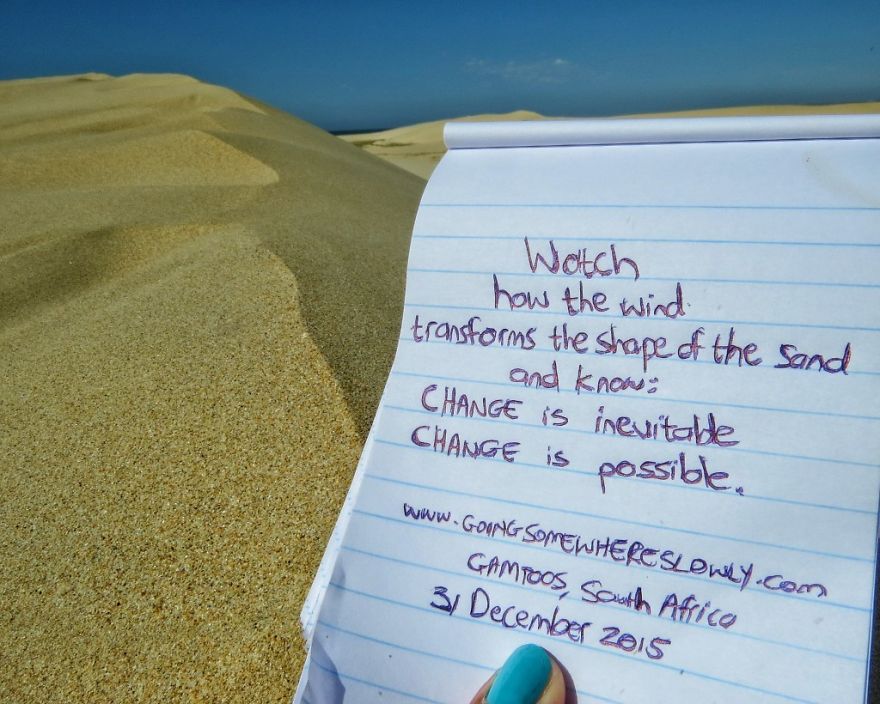 Watch
how the wind
transforms the shape of the sand
and know:
CHANGE is inevitable
CHANGE is possible.
www.GOINGSOMEWHERESLOWLY.com
GAMTOOS, South Africa
31 December 2015